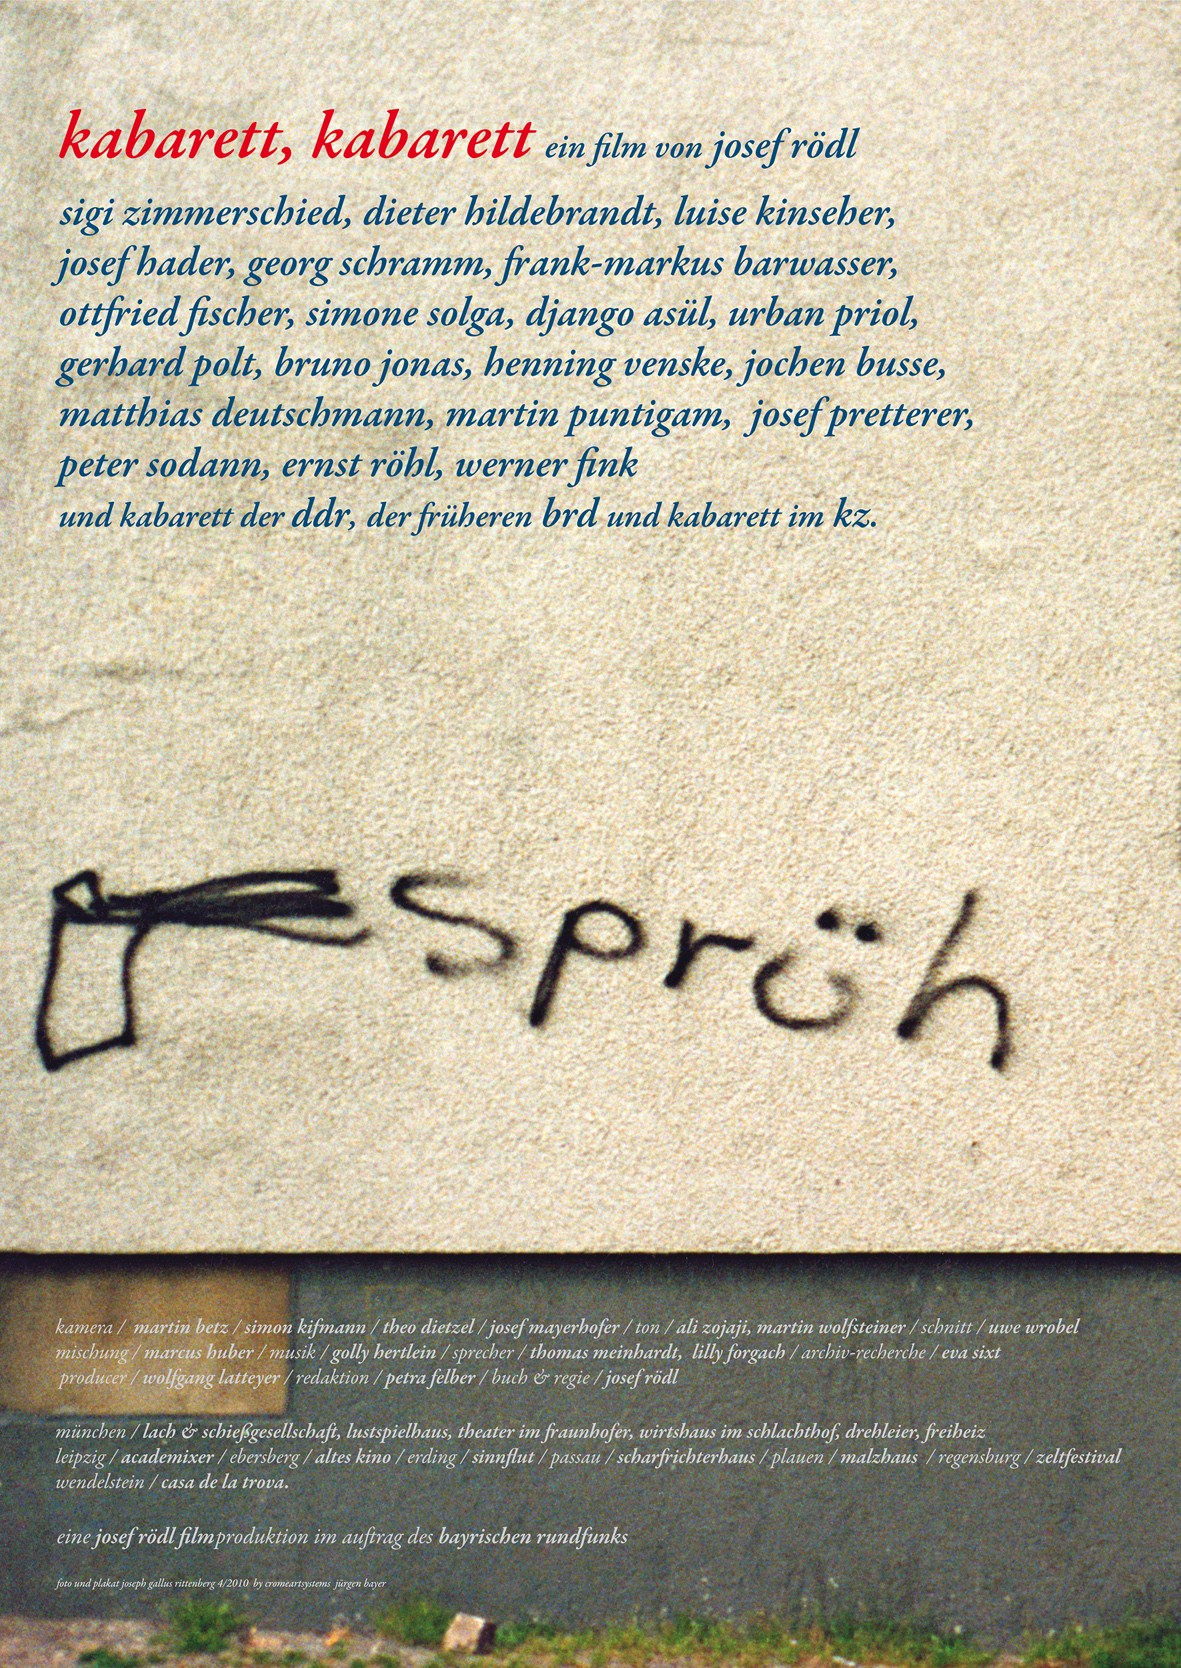 kabarett, kabarett ein film von josef rödl
sigi zimmerschied, dieter hildebrandt, luise kinseher,
josef hader, georg schramm, frank-markus barwasser,
ottfried fischer, simone solga, django asül, urban priol,
gerhard polt, bruno jonas, henning venske, jochen busse,
matthias deutschmann, martin puntigam, josef pretterer,
peter sodann, ernst röhl, werner fink
und kabarett der ddr, der früheren brd und kabarett im kz.
sprüh
kamera / martin betz / simon kifmann / theo dietzel / josef mayerhofer / ton / ali zojaji, martin wolfsteiner / schnitt / uwe wrobel
mischung / marcus huber / musik / golly hertlein / sprecher / thomas meinhardt, lilly forgach / archiv-recherche / eva sixt
producer / wolfgang latteyer / redaktion / petra felber / buch & regie / josef rödl
münchen / lach & schießgesellschaft, lustspielhaus, theater im fraunhofer, wirtshaus im schlachthof, drehleier, freiheiz
leipzig / academixer / ebersberg / altes kino / erding / sinnflut / passau / scharfrichterhaus / plauen / malzhaus / regensburg / zeltfestival
wendelstein / casa de la trova.
eine josef rödl filmproduktion im auftrag des bayrischen rundfunks
foto und plakat joseph gallus rittenberg 4/2010 by cromeartsystems jürgen bayer